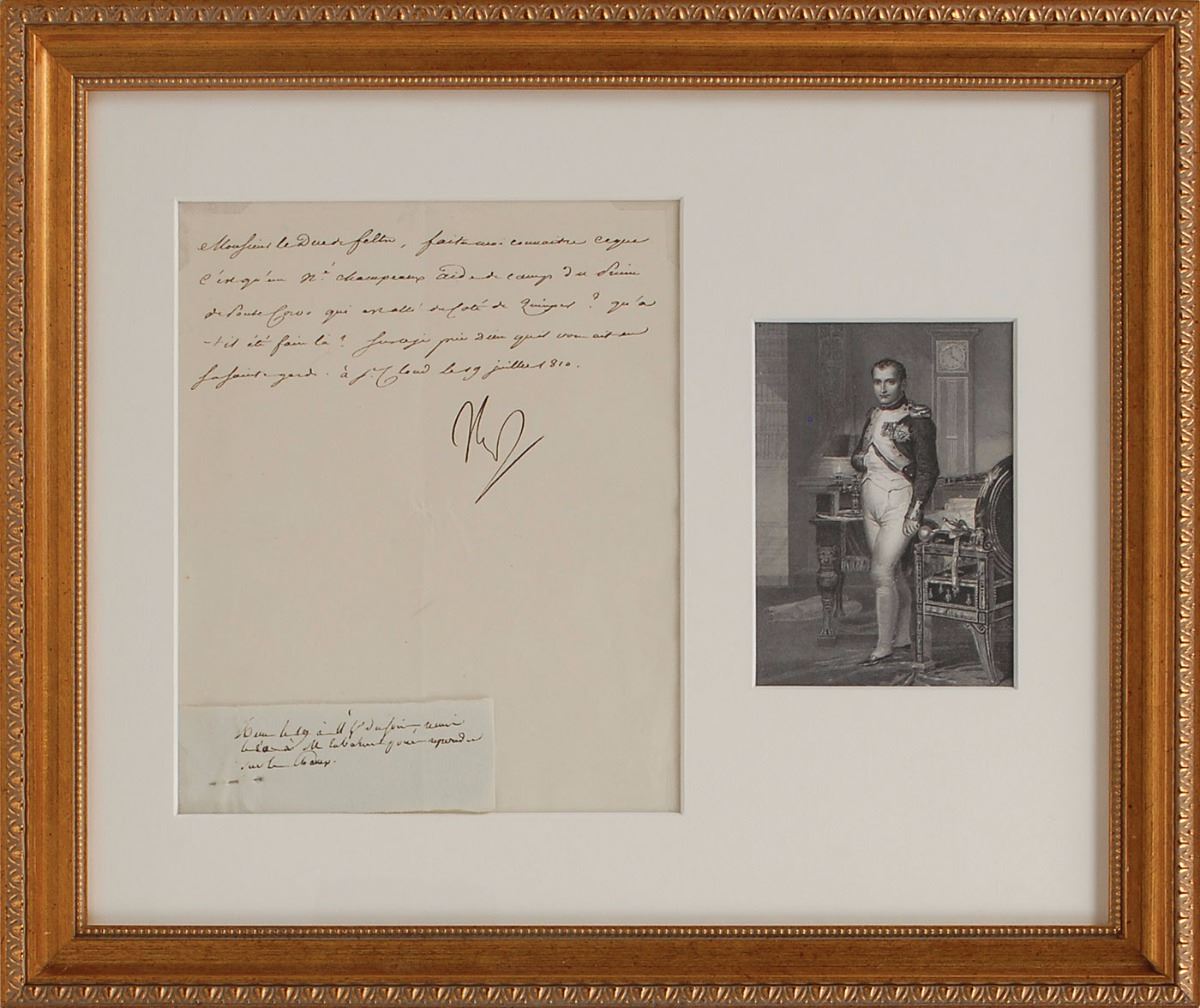 Monsieur le Duc de feltre, faites moi connaitre ce que
c'est qu'un Mr. Champeaux aide de camp du Prince
de Ponte Corvo qui est allé du Coté de Quimper ? qu'a
t-il été faire là ? Sur ce je prie dieu qu'il vous ait en
sa sainte garde. à St. Cloud le 19 juillet 1810.
Np
le 19 à
le à M. pour repondre
sur le Champ.